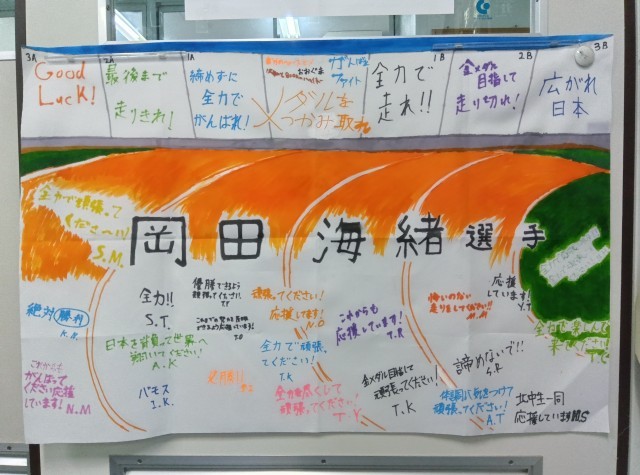 3A
2A
1A
1B
2B
3B
Good
Luck!
最後まで
走りきれ!
締めずに
全力で
がんばれ!
メダルを
つかみ取れ
がんばれ
ファイト
全力で
走れ!!
金メダル
目指して
走り切れ!
広がれ
日本
全力で頑張って
ください!!
S.M.
岡田海緒選手
絶対勝利
K.R.
全力!!
S.T.
優勝できるよう
頑張ってください!
頑張ってください!
応援してます!
N.O
これからも
応援してます!
T.R
悔いのない
走りをしてください!!
M.M
応援
しています!
Y.T
日本を背負って世界へ
羽ばたいてください!
A.K
全力で頑張っ
てください!
T.K
諦めないで!!
S.R
これからも
がんばって
ください応援
しています!
N.M
バモス
I.K.
必勝!!
全力を尽くして
頑張ってください!
T.K
金メダル目指して
頑張ってください!
T.K
体調に気をつけて
頑張ってください!
A.T
北中生一同
応援しています
M.S